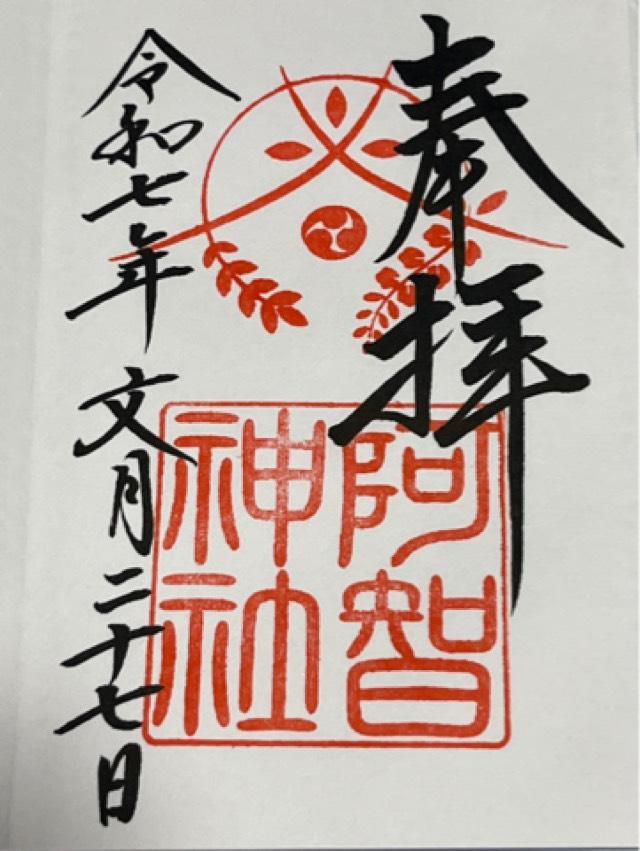 奉拝
阿智
神社
令和七年 文月二十七日